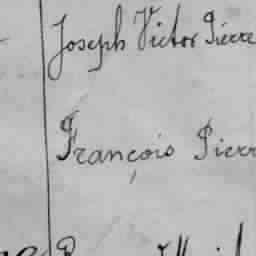 Joseph Victor Pierre
François Pierr